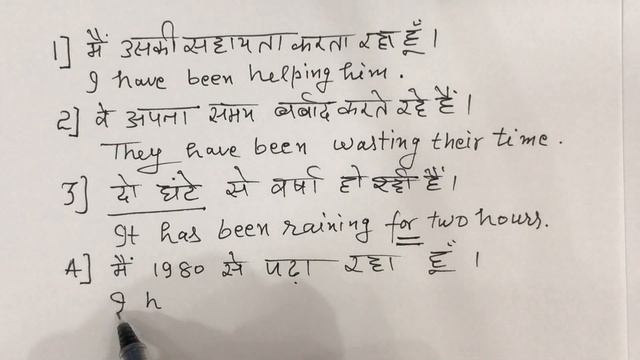 1] मैं उसकी सहायता करता रहा हूँ।
I have been helping him.
2] वे अपना समय बर्बाद करते रहे हैं।
They have been wasting their time.
3] दो घंटे से वर्षा हो रही हैं।
It has been raining for two hours.
4] मैं 1980 से पढ़ा रहा हूँ।
I h